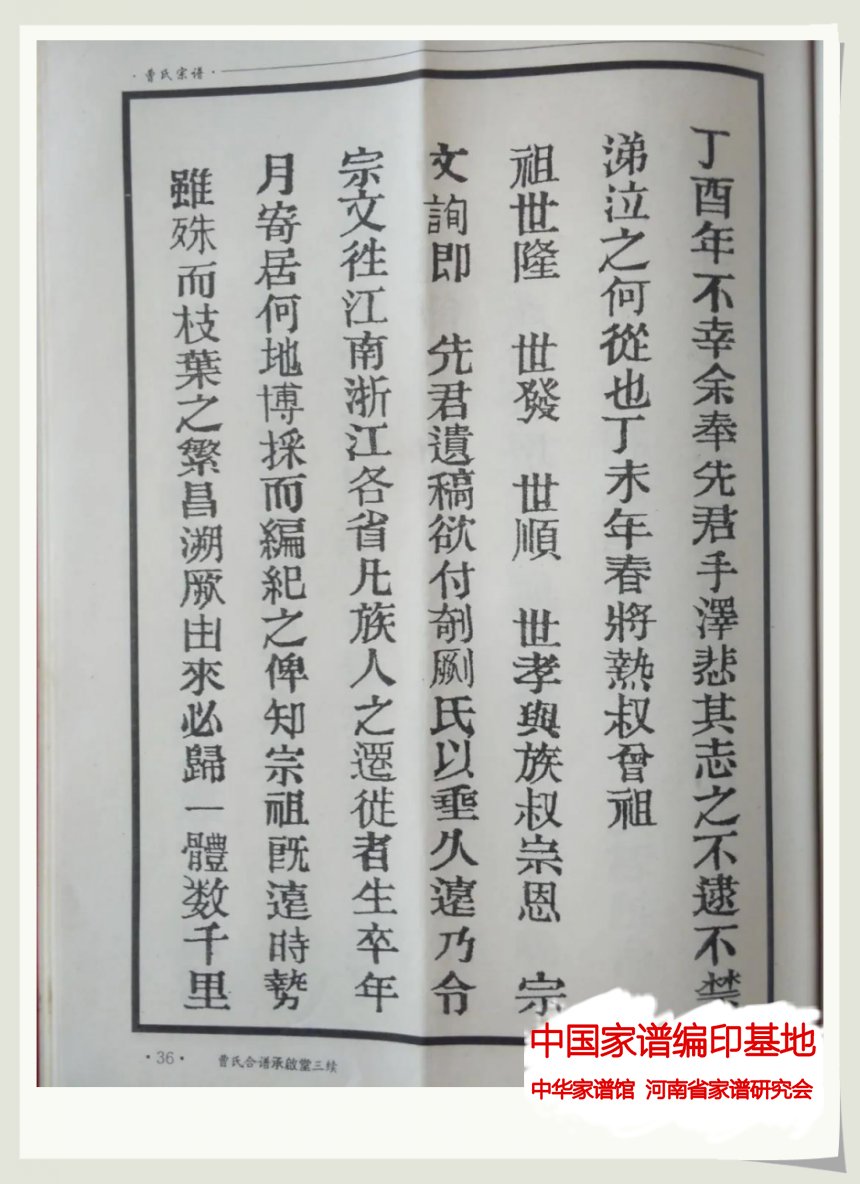 ·曹氏宗谱·
丁酉年不幸余奉先君手澤悲其志之不逮不禁
涕泣之何從也丁未年春將熱叔曾祖
祖世隆　世發　世順　世孝與族叔宗恩　宗
文詢即　先君遺稿欲付剞劂氏以垂久遠乃令
宗文徃江南浙江各省凡族人之遷徙者生卒年
月寄居何地博採而編紀之俾知宗祖既遠時勢
雖殊而枝葉之繁昌溯厥由來必歸一體数千里
·36·　曹氏合谱承啟堂三续
中国家谱编印基地
中华家谱馆 河南省家谱研究会